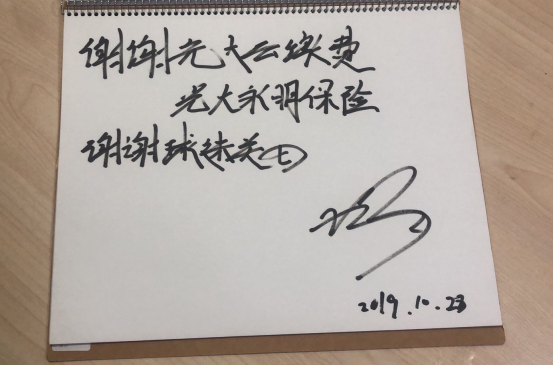 谢谢光大云缴费
光大永明保险
谢谢球迷关
2019.10.23